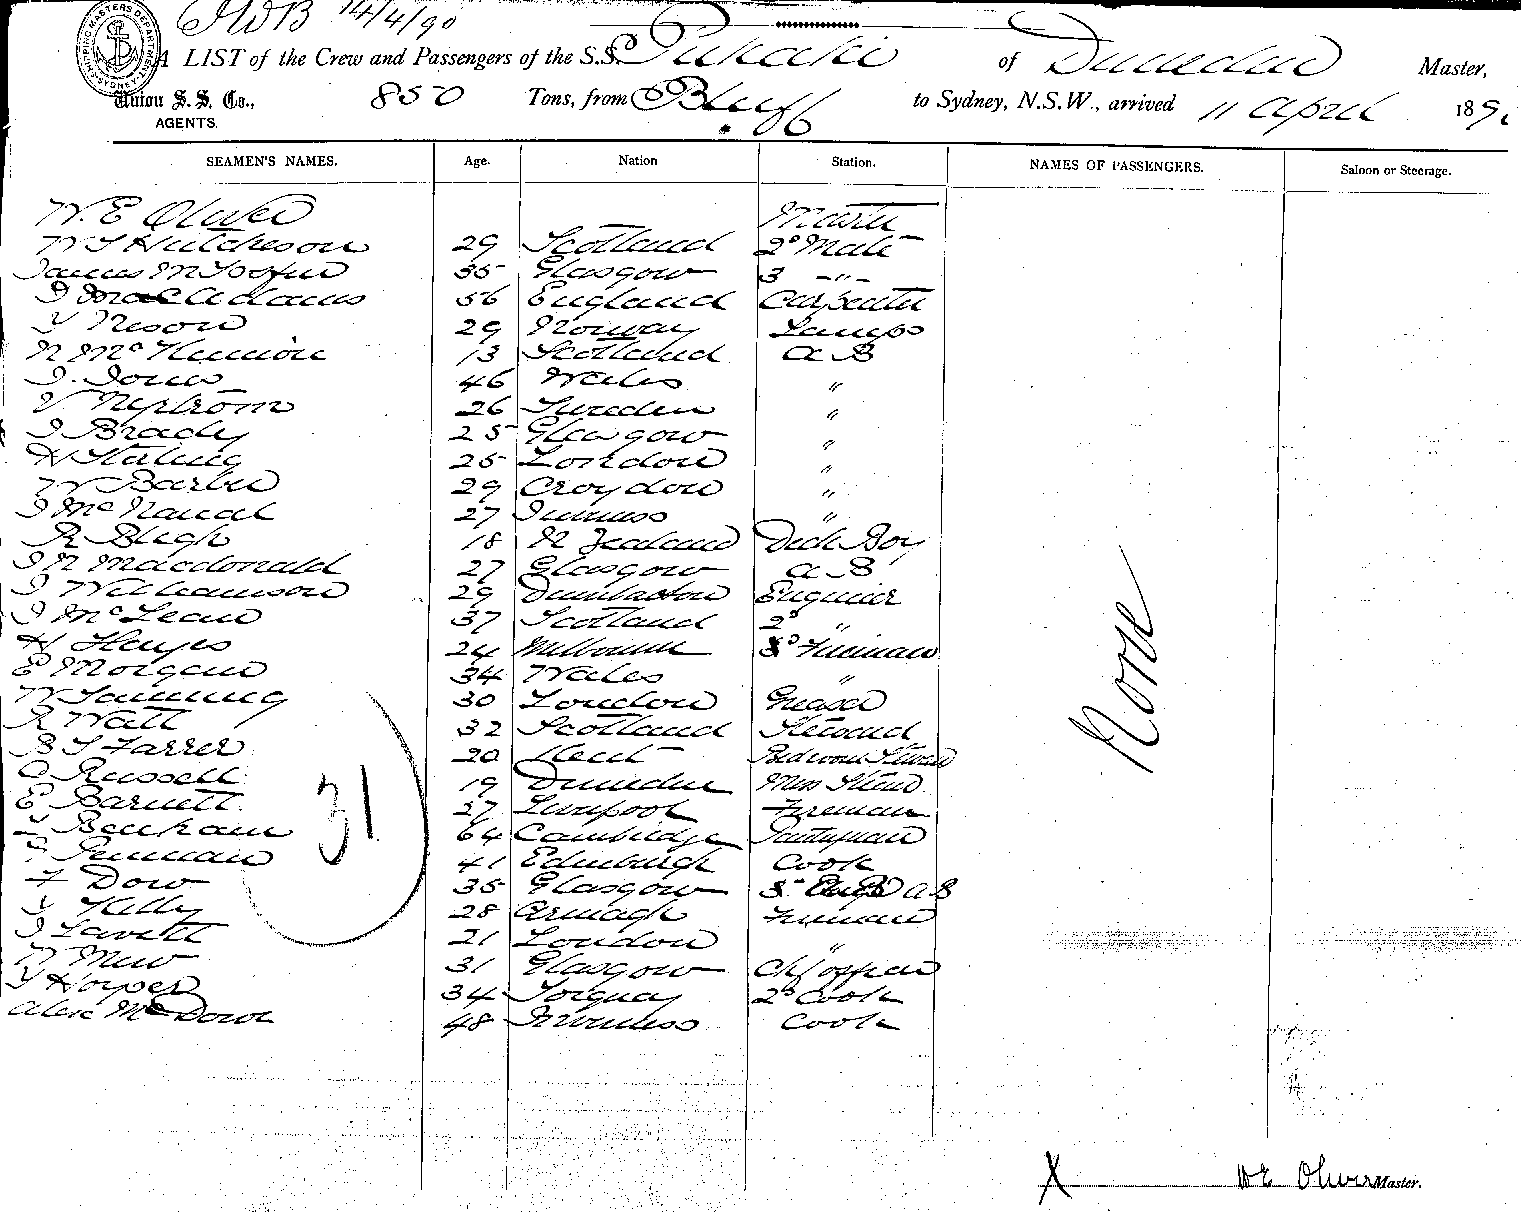 SHIPPING MASTERS DEPARTMENT SYDNEY
JWB 14/4/90
A LIST of the Crew and Passengers of the S.S. Pukaki of Dunedin Master,
Union S. S. Co., 850 Tons, from Bluff to Sydney, N.S.W., arrived 11 April 1890
AGENTS.
SEAMEN'S NAMES. Age. Nation Station. NAMES OF PASSENGERS. Saloon or Steerage.
W. E Oliver Master
W S Hutcheson 29 Scotland 2° Mate
James 35 Glasgow 3 -"-
J MacAdams 56 England Carpenter
29 Norway Lamps
N Mc Kinnion 13 Scotland A B
J. Jones 46 Wales "
V Nystrom 26 Sweden "
J Brady 25 Glasgow "
H Starling 25 London "
W Barber 29 Croydon "
J Mc 27 Inverness "
R Bligh 18 N Zealand Deck Boy
J N Macdonald 27 Glasgow A B
J Williamson 29 Dumbarton Enginier
J Mc Lean 37 Scotland 2° "
H Hayes 24 Melbourne Fireman
E Morgan 34 Wales "
W 30 London Greaser
R Watt 32 Scotland Steward
B S Farrer 20 Kent Bedroom Steward
O Russell 19 Dunedin Mess Steward
E Barnett 27 Liverpool Fireman
Benham 64 Cambridge Pantryman
Penman 41 Edinburgh Cook
F Dow 35 Glasgow A B
Kelly 28 Armagh Fireman
J Lavett 21 London "
W Mew 31 Glasgow Chf officer
Y Harper 34 Torquay 2° Cook
Alex McDowl 48 Inverness Cook
31
None
X W E Oliver Master.